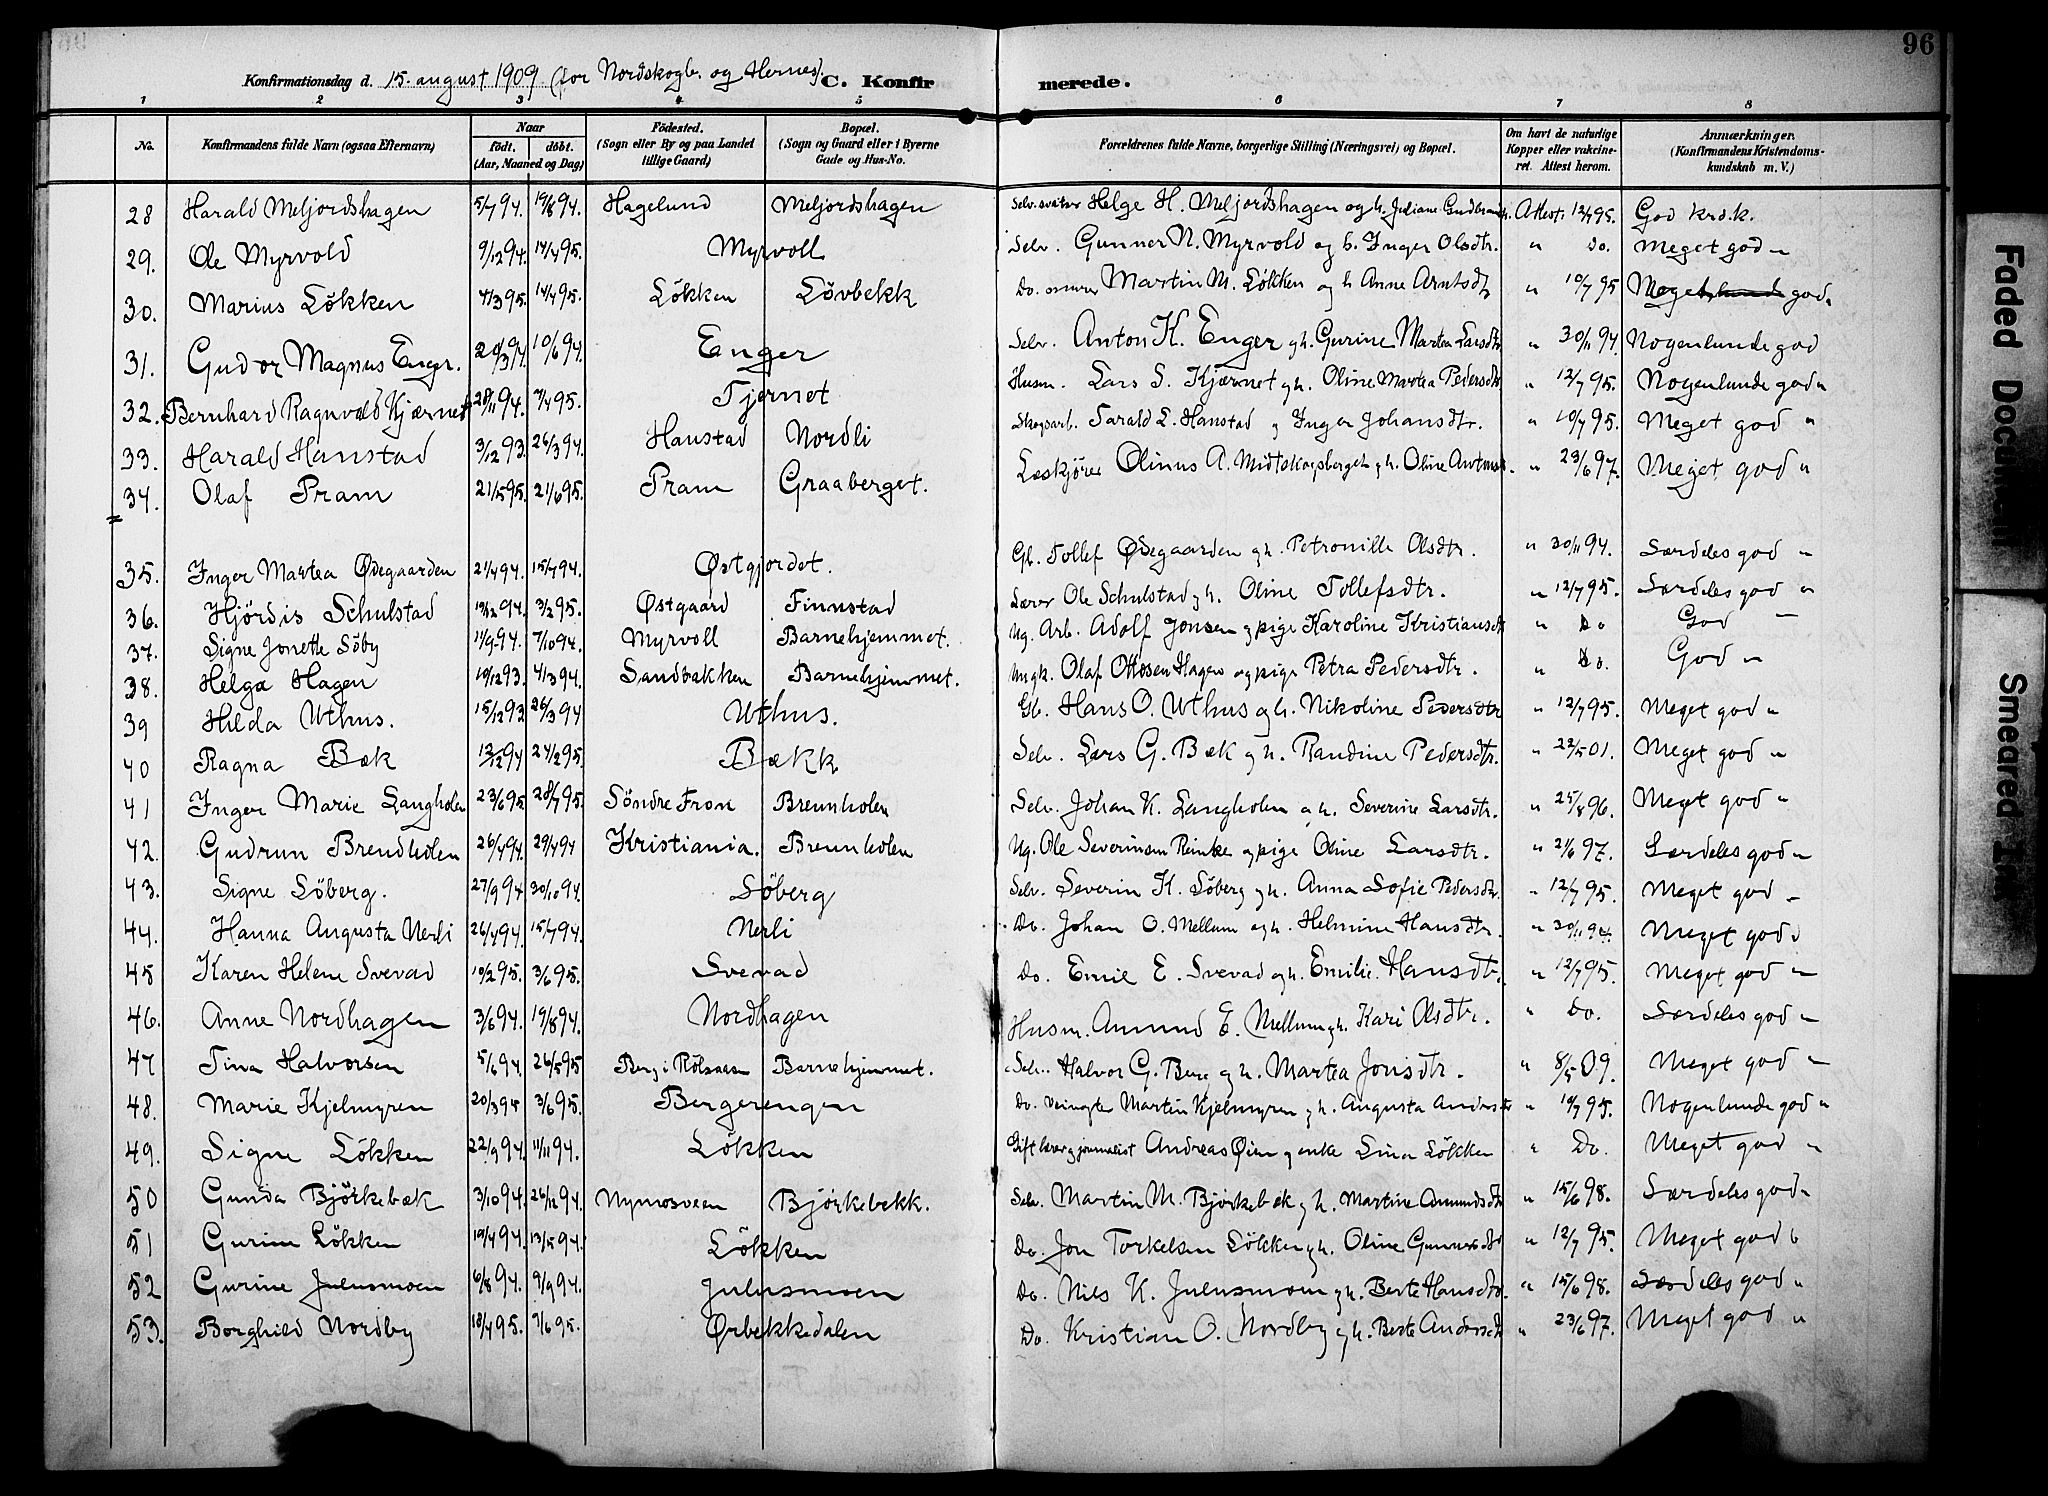 96
Konfirmationsdag d. 15. august 1909 (for Nordskogb. og Hernes). C. Konfirmerede.
1 2 3 4 5 6 7 8
No. Konfirmandens fulde Navn (ogsaa Efternavn) Naar født. døbt. (Aar, Maaned og Dag) Födested. (Sogn eller By og paa Landet tillige Gaard) Bopæl. (Sogn og Gaard eller i Byerne Gade og Hus-No. Forældrenes fulde Navne, borgerlige Stilling (Næringsvei) og Bopæl. Om havt de naturlige Kopper eller vakcineret. Attest herom. Anmærkninger. (Konfirmandens Kristendomskundskab m. V.)
28 Harald Meljordshagen 5/7 94. 19/8 94. Hagelund Meljordshagen Selv. Helge H. Meljordshagen og h. Juliane Attest. 12/7 95. God krd.k.
29. Ole Myrvold 9/12 94. 14/4 95. Myrvoll Selv. Gunner N. Myrvold og h. Inger Olsdtr. " Do. Meget god "
30. Marius Lökken 4/3 95. 14/4 95. Lökken Lövbekk Do. Martin M. Lökken og h Anne Arntsdtr " 10/7 95 Meget god "
31. Gudor Magnus Engr. 20/3 94 10/6 94. Enger Selv. Anton K. Enger og h. Gurine Martea Larsdtr " 30/11 94. Nogenlunde god
32. Bernhard Ragnvald Kjærnet 28/11 94. 7/4 95. Tjernet Husm. Lars S. Kjærnet og h. Oline Martea Pedersdtr " 12/7 95. Nogenlunde god "
33. Harald Hanstad 3/12 93. 26/3 94. Hanstad Nordli Skogsarb. Tarald L. Hanstad og Inger Johansdtr. " 10/7 95. Meget god "
34. Olaf Pram 21/5 95. 21/6 95. Pram Graaberget. Læskjörer Olinus A. Midtskogsberget og h. Oline " 23/6 97. Meget god "
35. Inger Martea Ødegaarden 21/4 94. 15/7 94. Østgjordet. Gb. Tollef Ødegaarden og h. Petronille Olsdtr. " 30/11 94. Særdeles god "
36. Hjördis Schulstad 19/12 94. 3/2 95. Østgaard Finnstad Lærer Ole Schulstad og h. Oline Tollefsdtr. " 12/7 95. Særdeles god "
37. Signe Jonette Söby 11/9 94. 7/10 94. Myrvoll Barnehjemmet. Ug. Arb. Adolf Jonsen og pige Karoline Kristiansdtr " Do God "
38. Helga Hagen 19/12 93. 4/3 94. Sandbakken Barnehjemmet. Ungk. Olaf Ottosen Hagen og pige Petra Pedersdtr. " Do. God "
39 Hilda Uthus. 15/12 93 26/3 94 Uthus. Gb. Hans O. Uthus og h. Nikoline Pedersdtr " 12/7 95. Meget god "
40 Ragna Bæk 12/12 94 24/2 95. Bækk Selv. Lars G. Bæk og h. Randine Pedersdtr. " 22/5 01. Meget god "
41 Inger Marie Langholen 23/6 95. 28/7 95. Söndre Fron Brennholen Selv. Johan K. Langholen og h. Severine Larsdtr. " 25/8 96. Meget god "
42. Gudrun Brendholen 26/4 94. 29/4 94 Kristiania. Brennholen Ug. Ole Severinsen Reinke og pige Oline Larsdtr. " 21/6 97. Særdeles god "
43. Signe Söberg. 27/9 94 30/10 94. Söberg Selv. Severin K. Söberg og h. Anna Sofie Pedersdtr. " 12/7 95. Meget god "
44. Hanna Augusta Nerli 26/4 94. 15/7 94. Nerli Do. Johan O. Mellum og h. Helmine Hansdtr. " 30/11 94. Meget god "
45 Karen Helene Svevad 10/2 95. 3/6 95. Svevad Do. Emil E. Svevad og h. Emilie Hansdtr. " 12/7 95. Meget god "
46. Anne Nordhagen 3/6 94. 19/8 94. Nordhagen Husm. Amund E. Mellum og h. Kari Olsdtr. " Do. Særdeles god "
47 Tina Halvorsen 5/6 94. 26/5 95 Berg i Barnehjemmet. Selv. Halvor G. Berg og h. Martea Jonsdtr. " 8/5 09. Meget god "
48. Marie Kjelmyren 20/3 95 3/6 95. Bergerengen Do. veivogter Martin Kjelmyren og h. Augusta Andersdtr " 10/7 95. Nogenlunde god "
49. Signe Lökken 22/9 94. 11/11 94. Lökken Gift lærer og journalist Andreas Øien og enke Lina Lökken " Do. Meget god "
50 Gunda Björkebæk 3/10 94. 26/12 94. Nymosveen Björkebekk. Selv. Martin M. Björkebæk og h. Martine Amundsdtr " 15/6 98. Særdeles god "
51 Gurine Lökken 10/4 94. 13/5 94. Lökken Do. Jon Torkelsen Lökken og h. Oline Gunnersdtr " 12/7 95. Meget god "
52 Gurine Julusmoen 6/8 94. 9/9 94. Julusmoen Do. Nils K. Julusmoen og h. Berte Hansdtr. " 15/6 98. Særdeles god "
53. Borghild Nordby 18/4 95. 7/6 95. Ørbekkedalen Do. Kristian O. Nordby og h. Berte Andersdtr " 23/6 97. Meget god "
Faded Document
Smeared Ink